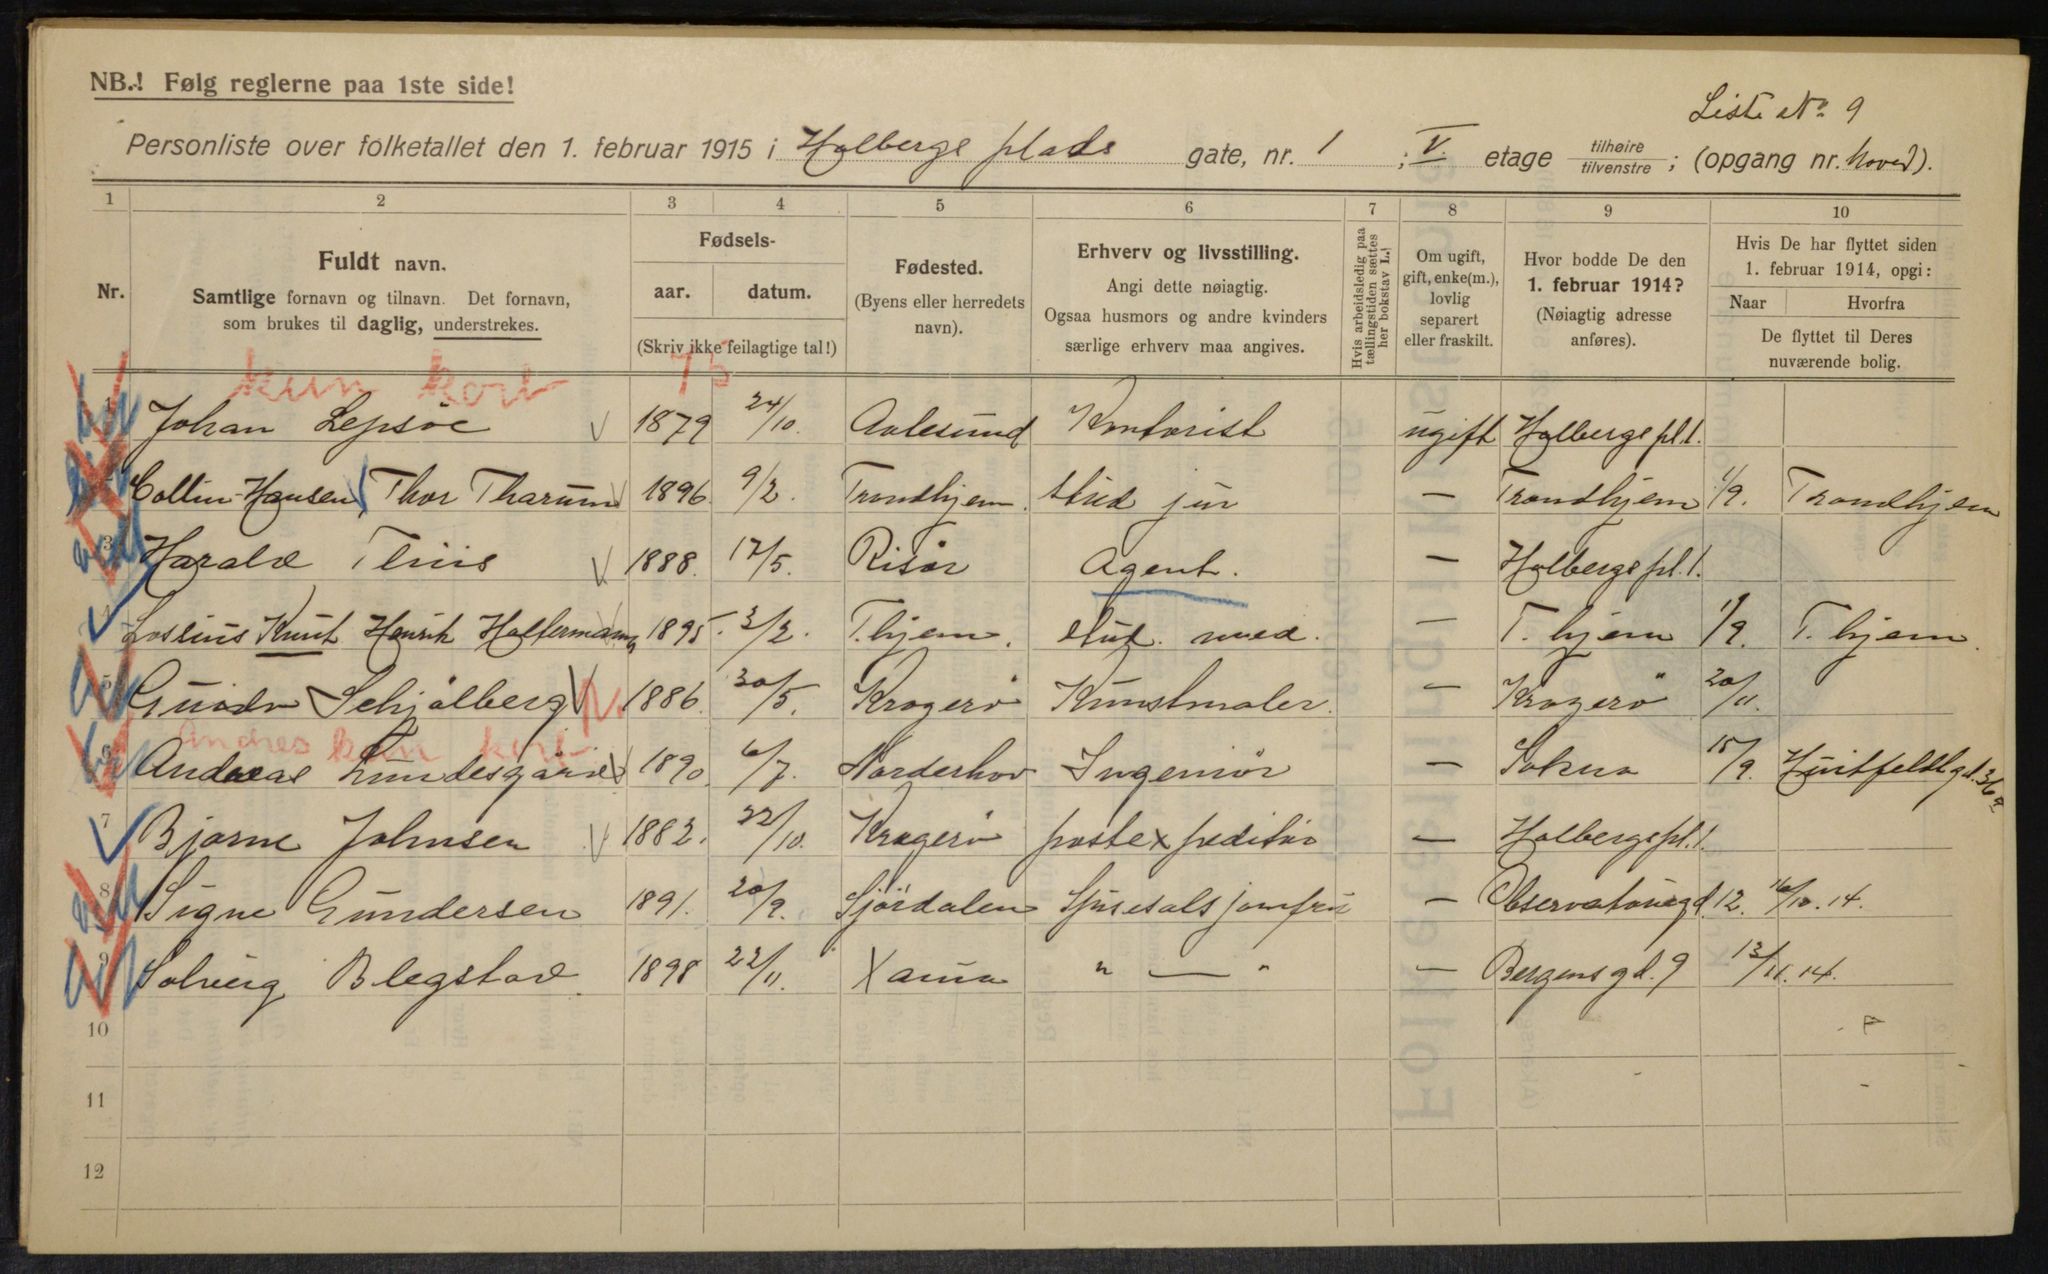 Liste No. 9
NB.! Følg reglerne paa 1ste side!
Personliste over folketallet den 1. februar 1915 i Holbergs plads gate, nr. 1 ; V. etage tilhøire/tilvenstre ; (opgang nr. Hoved).
1 2 3 4 5 6 7 8 9 10
Nr.
Fuldt navn.
Samtlige fornavn og tilnavn. Det fornavn,
som brukes til daglig, understrekes.
Fødsels-
aar. datum.
(Skriv ikke feilagtige tal!)
Fødested.
(Byens eller herredets
navn).
Erhverv og livsstilling.
Angi dette nøiagtig.
Ogsaa husmors og andre kvinders
særlige erhverv maa angives.
Hvis arbeidsledig paa
tællingstiden sættes
her bokstav L.!
Om ugift,
gift, enke(m.),
lovlig
separert
eller fraskilt.
Hvor bodde De den
1. februar 1914?
(Nøiagtig adresse
anføres).
Hvis De har flyttet siden
1. februar 1914, opgi:
Naar Hvorfra
De flyttet til Deres
nuværende bolig.
kun kort 75
1 Johan Lepsöe 1879 24/10. Aalesund Kontorist ugift Holbergs pl. 1.
2 Collin-Hansen, Thor Tharum 1896 9/2. Trondhjem. stud jur — Trondhjem 1/9. Trondhjem
3 Harald Thiis 1888. 17/5. Risör Agent. — Holbergs pl. 1.
4 Lossius Knut Henrik Holtermann 1895. 3/2. T.hjem. stud. med. — T. hjem 1/9. T. hjem.
5 Schjölberg 1886. 30/5. Kragerö Kunstmaler. — Kragerö 20/11.
Andres kun kort
6 Andreas Lundesgaard 1890. 6/7. Norderhov Ingeniør — Sokna 15/9. Huitfeldtgd. 36a
7 Bjarne Johnsen 1882. 22/10. Kragerö postexpeditör — Holbergs pl. 1.
8 Signe Gundersen 1891. 20/9. Sjördalen Spisesalsjomfru — Observatoriegd. 12. 16/10.14.
9 Solveig Blegstad 1898 22/11. Xania " — " — Bergensgd. 9 13/11.14.
10
11
12